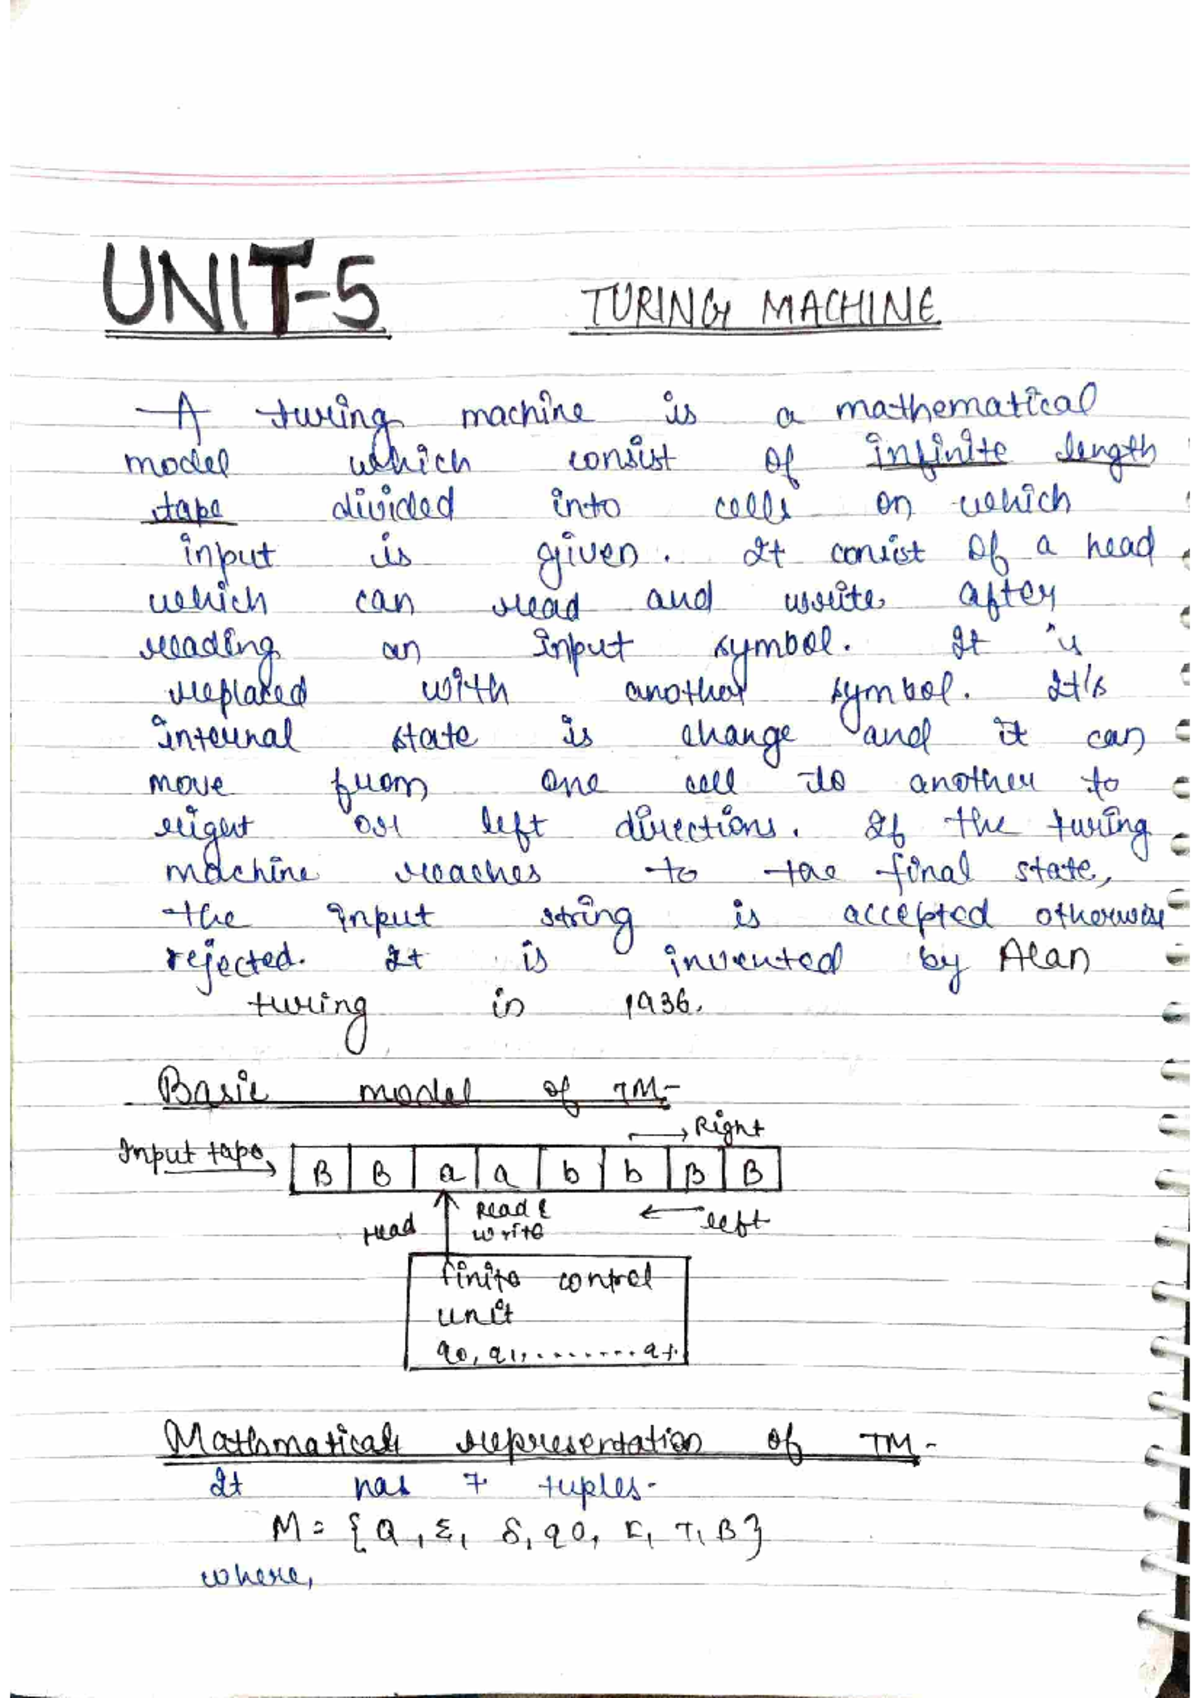 UNIT-5
TURING MACHINE
A turing machine is a mathematical
model which consist of infinite length
tape divided into cells on which
input is given. It consist of a head
which can read and write, after
reading an input symbol. It is
replaced with another symbol. It's
internal state is change and it can
move from one cell to another to
right or left directions. If the turing
machine reaches to the final state,
the input string is accepted otherwise
rejected. It is invented by Alan
turing in 1936.
Basic model of TM-
→ Right
Input tape →
B B a a b b B B
Head Read & ← left
write
finite control
unit
q0, q1, ........ q+.
Mathmatical representation of TM-
It has 7 tuples-
M = {Q, Σ, δ, q0, F, T, B}
where,